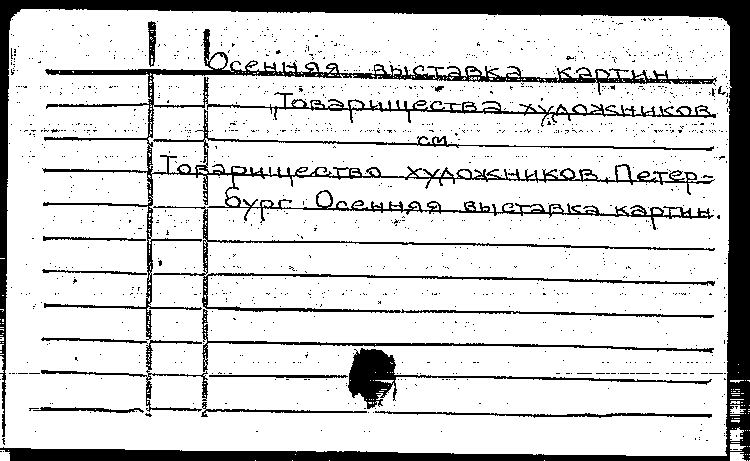 Осенняя выставка картин
Товарищества художников
см.
Товарищество художников. Петер-
бург. Осенняя выставка картин.